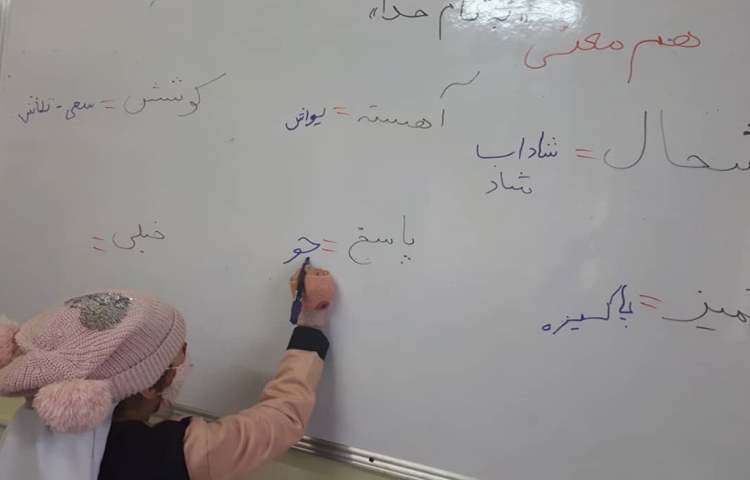 «به نام خدا»
هم معنی
شحال = شاداب
شاد
آهسته = یواش
کوشش = سعی - تلاش
میز = پاکیزه
پاسخ = جو
خیلی =